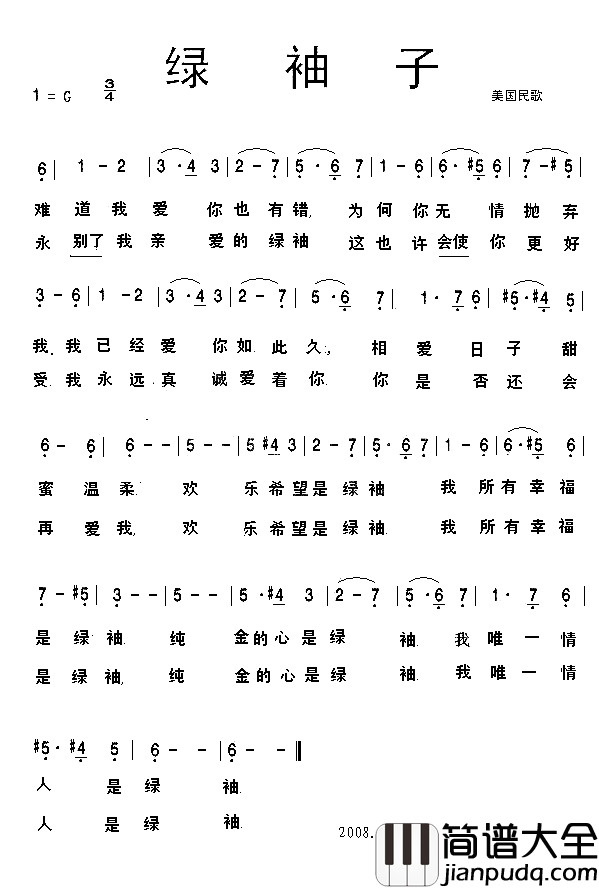 绿 袖 子
1 = G 3/4 美国民歌
6 | 1 - 2 | 3 · 4 3 | 2 - 7 | 5 · 6 7 | 1 - 6 | 6 · #5 6 | 7 - #5 |
难 道 我 爱 你 也 有 错, 为 何 你 无 情 抛 弃
永 别了 我 亲 爱 的 绿 袖 这 也 许 会使 你 更 好
3 - 6 | 1 - 2 | 3 · 4 3 | 2 - 7 | 5 · 6 7 | 1 · 7 6 | #5 · #4 5 |
我. 我 已 经 爱 你 如 此 久, 相 爱 日 子 甜
受. 我 永 远 真 诚 爱 着 你. 你 是 否 还 会
6 - 6 | 6 - - | 5 - - | 5 #4 3 | 2 - 7 | 5 · 6 7 | 1 - 6 | 6 · #5 6 |
蜜 温 柔. 欢 乐 希 望 是 绿 袖 我 所 有 幸 福
再 爱 我, 欢 乐 希 望 是 绿 袖. 我 所 有 幸 福
7 - #5 | 3 - - | 5 - - | 5 · #4 3 | 2 - 7 | 5 · 6 7 | 1 · 7 6 |
是 绿 袖. 纯 金 的 心 是 绿 袖. 我 唯 一 情
是 绿 袖, 纯 金 的 心 是 绿 袖. 我 唯 一 情
#5 · #4 5 | 6 - - | 6 - - ‖
人 是 绿 袖.
人 是 绿 袖.
2008.
简谱大全
www.jianpudq.com